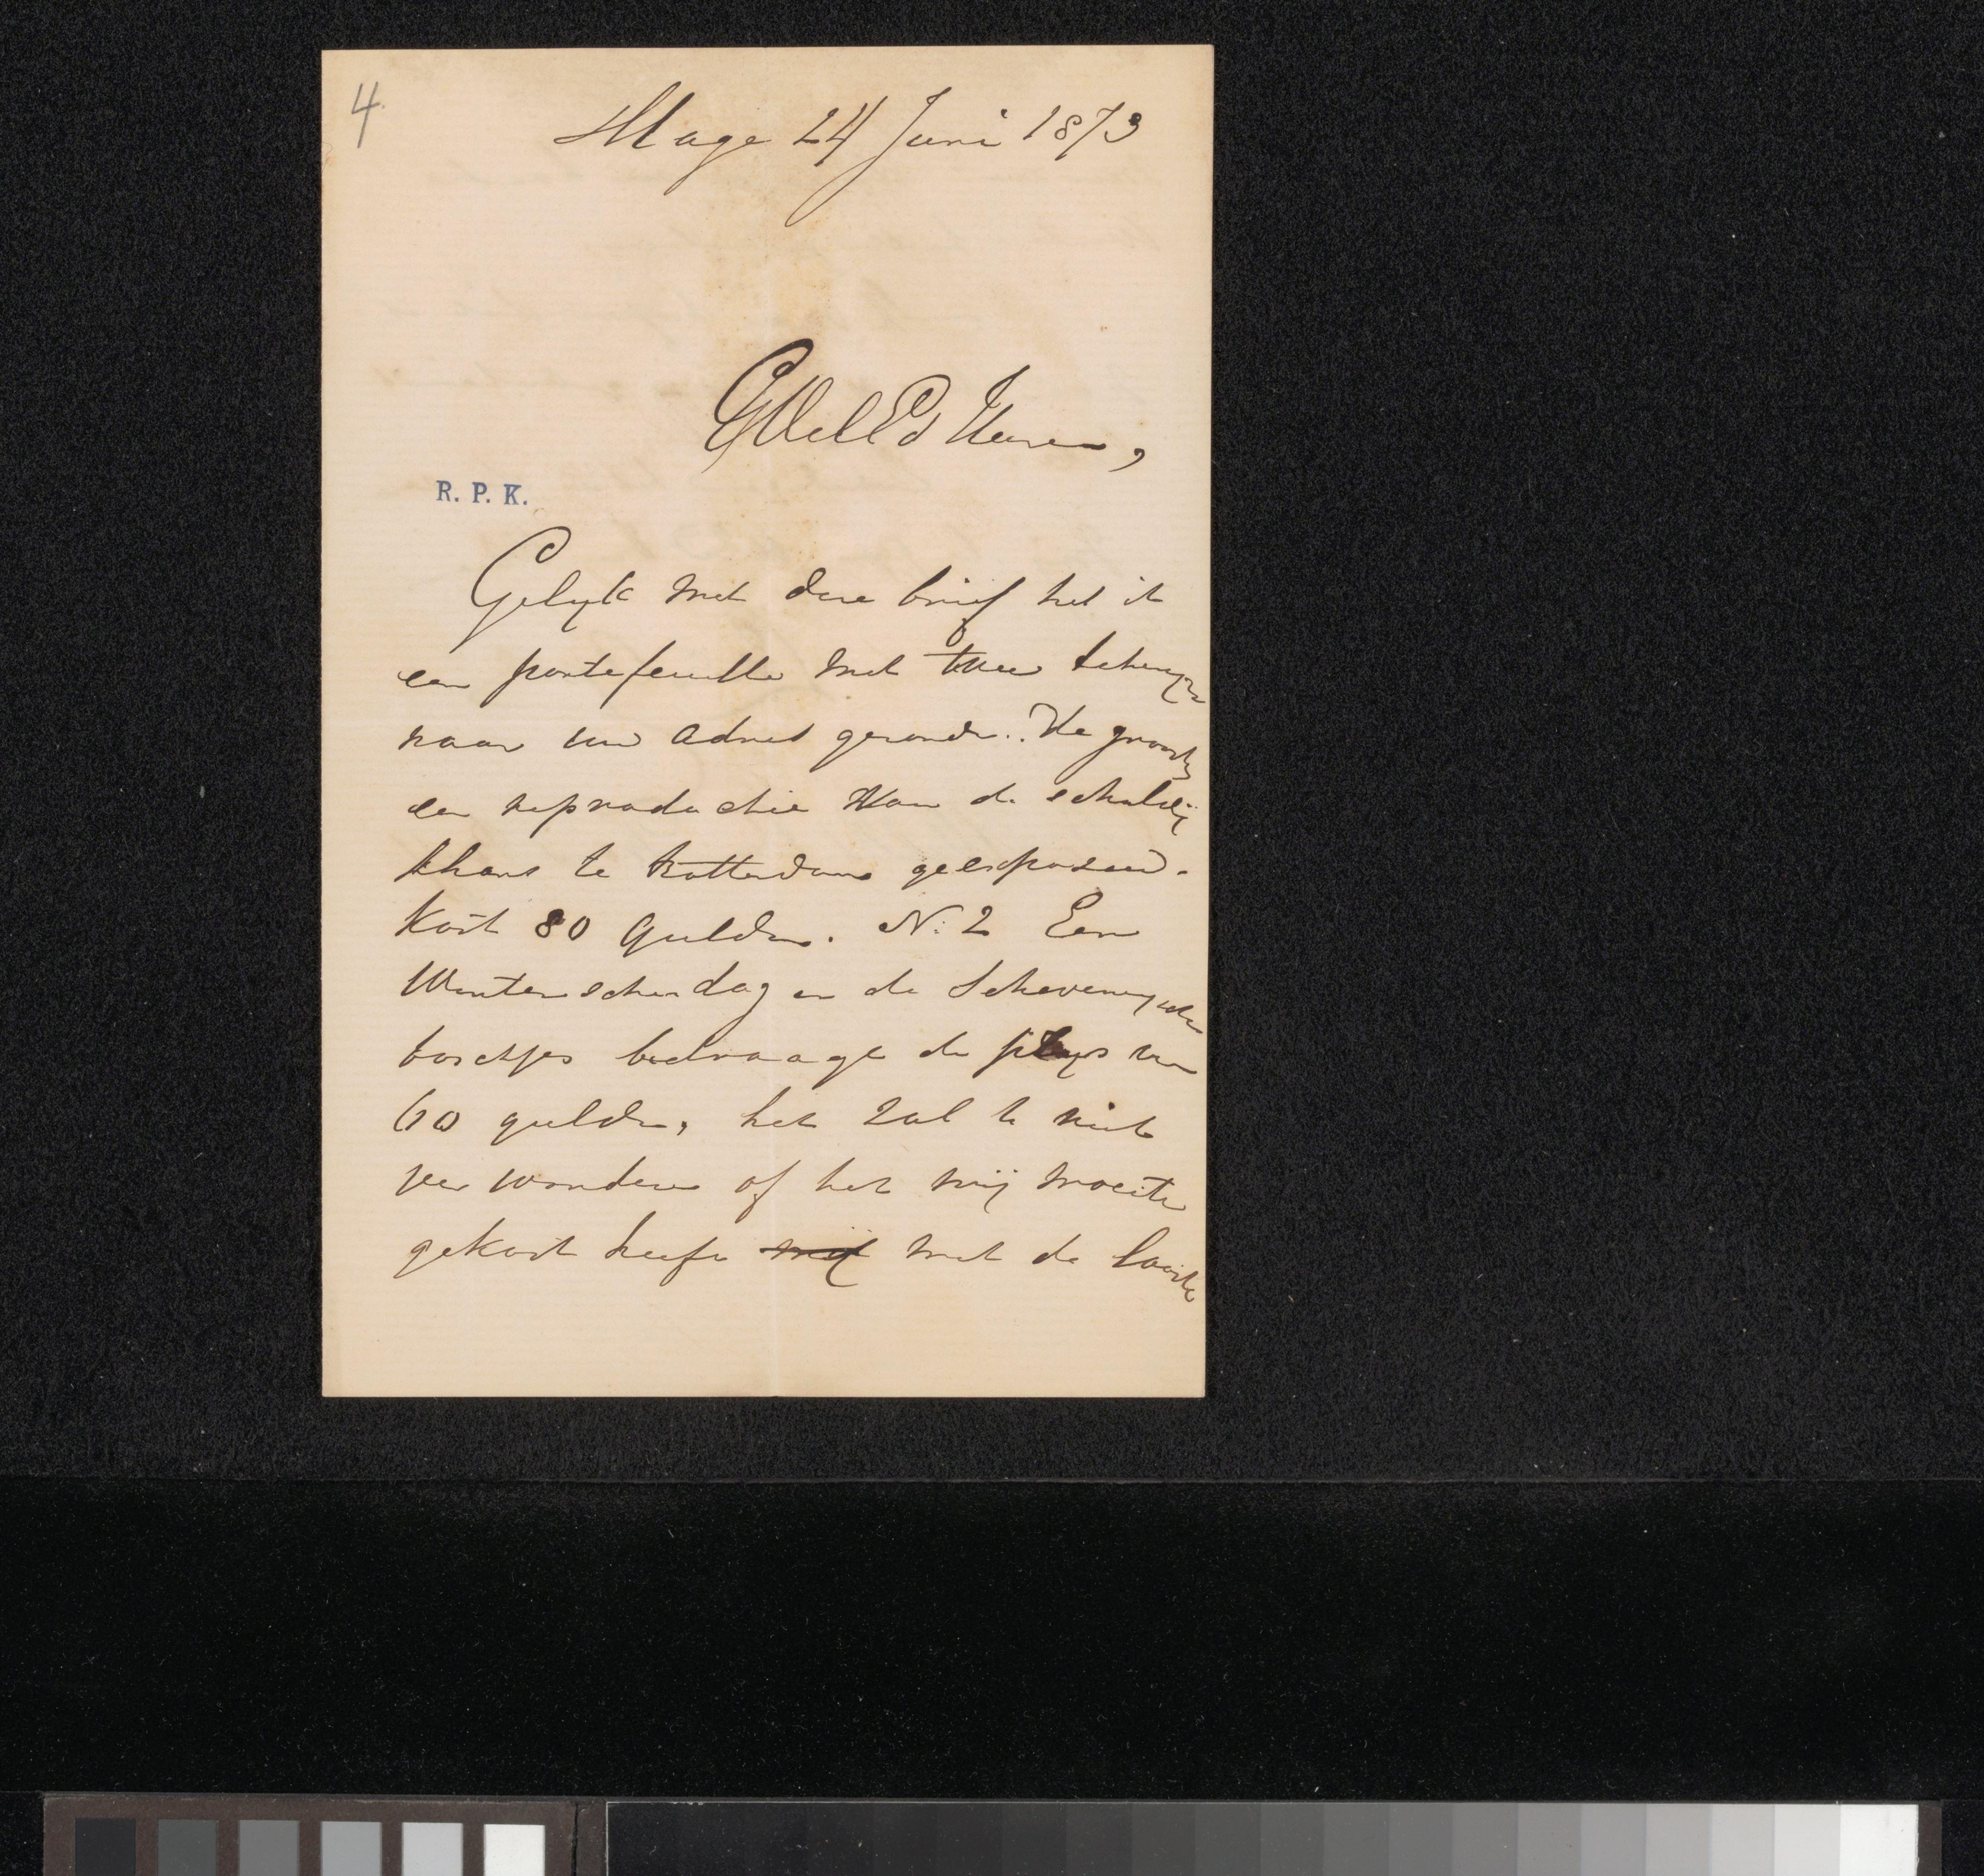 4.
sHage 24 Juni 1873
GWelEd Heer,
R. P. K.
Gelyk met deze brief heb ik
een portefeuille met twee
naar uw adres gezonden. De groote
een reproductie van de schilderij
thans te Rotterdam geexposeerd.
Kost 80 Gulden. N: 2 Een
Winterschendag in de Scheveningsche
boschjes bedraage de prijs van
60 gulden, het zal U niet
verwonderen of het mij moeite
gekost heeft met de laatste